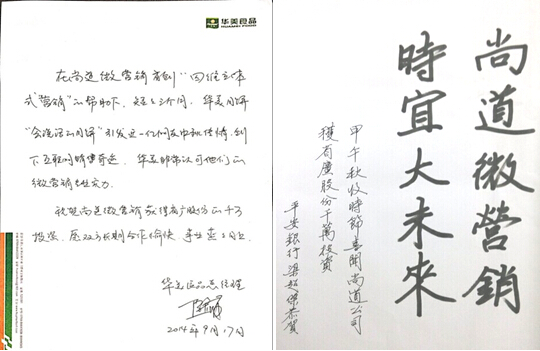 华美食品
HUAMEI FOOD
在尚道微营销首创“四维立体
式营销”的帮助下,短短三个月,华美月饼
“会说话的月饼”引发近一亿网友中秋传情,创
下互联网销售奇迹,华美非常认可他们的
微营销实力.
祝贺尚道微营销获得省广股份的千万
投资,愿双方长期合作愉快,事业蒸蒸日上.
华美食品总经理
2014年9月17日
尚道微營銷
時宜大未來
甲午秋收時節喜聞尚道公司
獲省廣股份千萬投資
平安銀行梁超傑恭賀